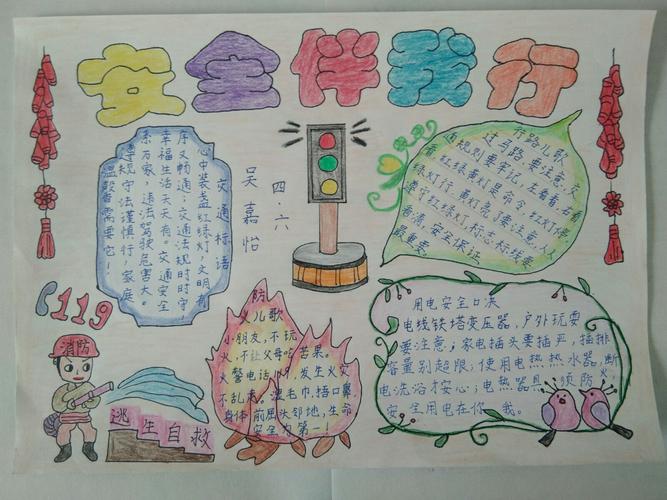 安全伴我行
交通标语
心中装盏红绿灯，文明有
序又畅通；交通法规时时守
幸福生活天天有。交通安全
系万家，违法驾驶危害大。
遵规守法谨慎行，家庭
温馨需要它！
四.六
吴嘉怡
行路儿歌
过马路，要注意，交
通规则要牢记，左看右看
看红绿黄灯是命令，红灯停
绿灯行，黄灯亮了要注意，人人
遵守红绿灯，标志标线要
看清，安全保证
最重要。
119
消防
逃生自救
防
火儿歌
小朋友，不玩
火，不让父母吃苦果。
火警电话119，发生火灾
不乱来。湿毛巾，捂口鼻，
身体前屈头邻地，生命
安全为第一！
用电安全口决
电线铁塔变压器，户外玩耍
要注意；家电插头要插严，插排
容量别超限；使用电热热水器，断
电洗浴才安心；电热器具须防火，
安全用电在你我。